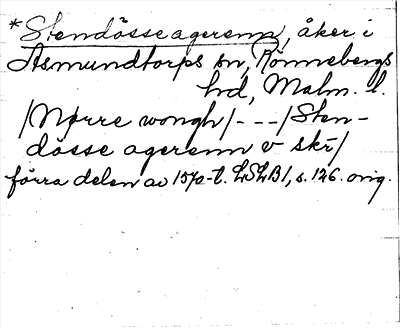 *Stendösse agerenn, åker i
Asmundtorps sn, Rönnebergs
hd, Malm. l.
/Nørre wongh/ - - - /Sten-
dösse agerenn v skr/
förra delen av 1570-t. LSLB1, s. 126. orig.